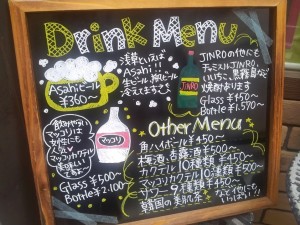 Drink Menu
Asahiビール
¥360〜
浅草といえば
Asahi!!
生ビール・瓶ビール
冷えてますよ
JINRO
JINROの他にも
チャミスル, JINRO
いいちこ、黒霧島など
焼酎あります
Glass ¥450〜
Bottle ¥1,570〜
飲みやすい
マッコリは
女性にも
人気♡
マッコリカクテル
も美味しい
ですよ〜
マッコリ
Glass ¥500〜
Bottle ¥2,100〜
Other Menu
角ハイボール ¥450〜
梅酒、杏露酒 ¥500〜
カクテル 10種類 ¥450〜
マッコリカクテル 10種類 ¥500〜
サワー 9種類 ¥450〜
韓国の美肌茶
など他にも
いっぱい!!